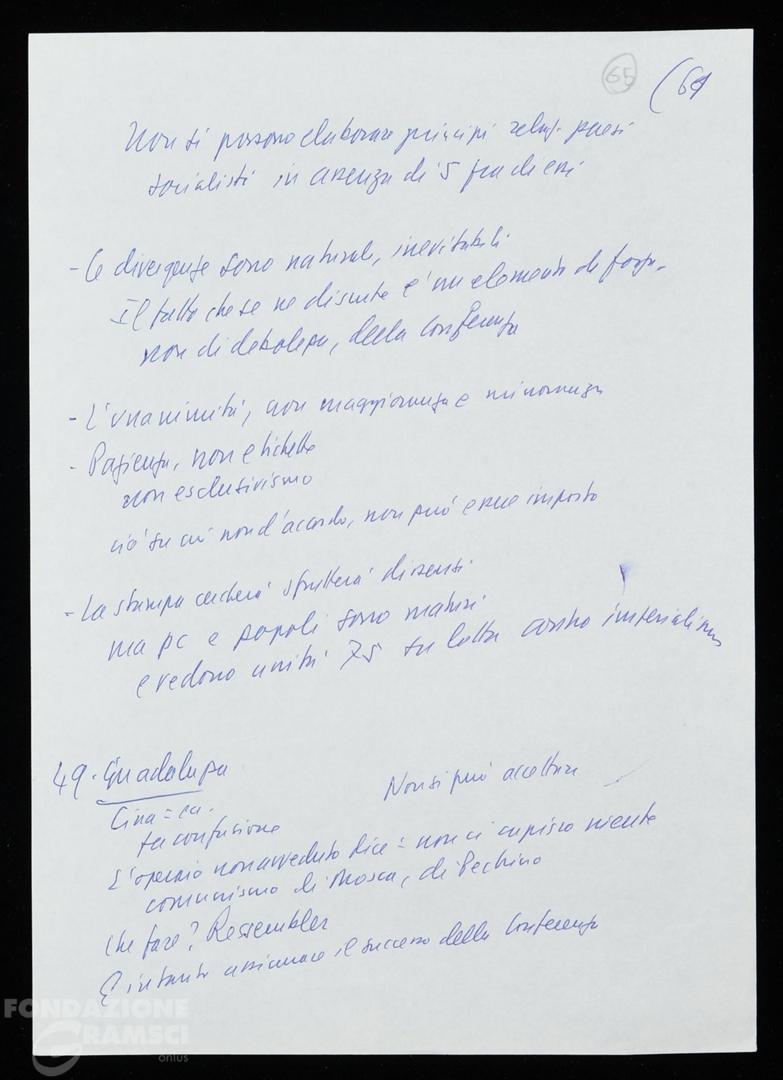 65 (64
Non si possono elaborare principi relaz. paesi
socialisti in assenza di 5 fra di essi
- Le divergenze sono naturali, inevitabili
Il fatto che se ne discute è un elemento di forza,
non di debolezza, della Conferenza
- L'unanimità, non maggioranza e minoranza
- Pazienza, non etichette
non esclusivismo
ciò su cui non d'accordo, non può essere imposto
- La stampa cercherà sfruttera' dissensi
ma pc e popoli sono maturi
e vedono unità 75 su lotta contro imperialismo
49. Guadalupa
Non si può accettare
Cina = ca.
fa confusione
L'operaio non avveduto dice = non ci capisco niente
comunismo di Mosca, di Pechino
Che fare? Ressembler
E intanto assicurare il successo della Conferenza
FONDAZIONE
GRAMSCI
onlus